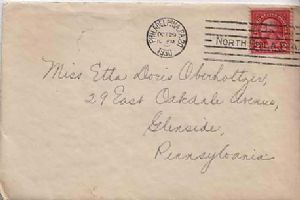 PHILADELPHIA, PA.
1930
NORTH
Miss Etta Doris Oberholtzer,
29 East Oakdale Avenue,
Glenside,
Pennsylvania